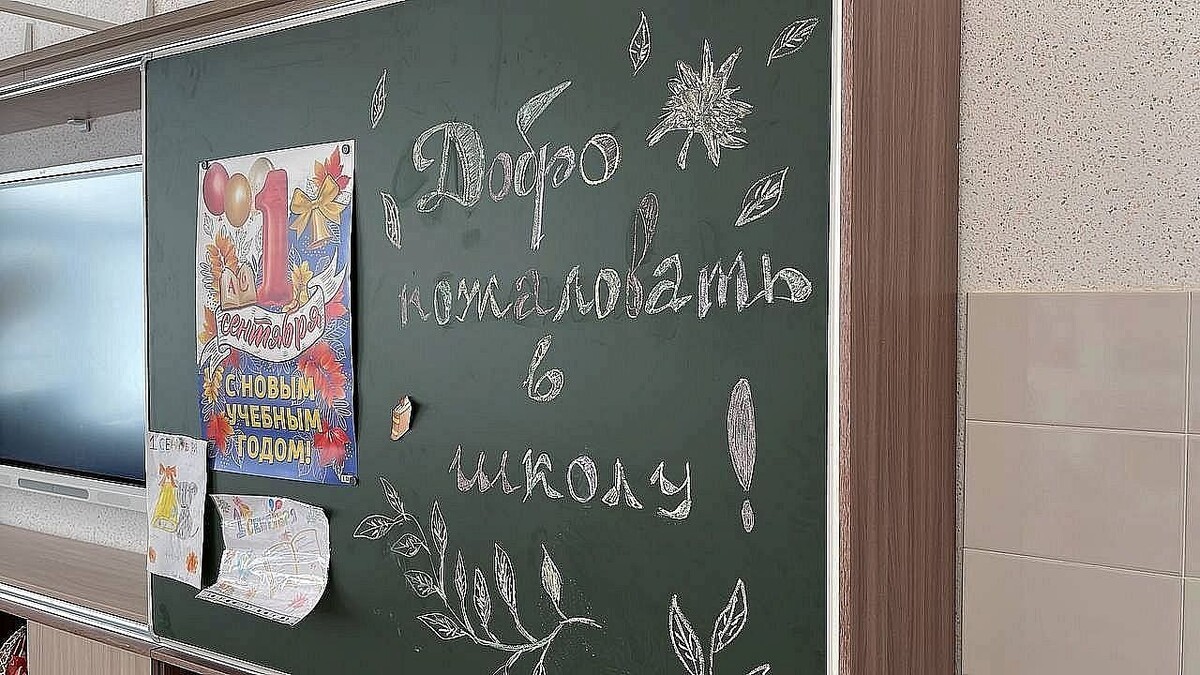 Добро
пожаловать
в
школу!
1
АС
сентября
С НОВЫМ
УЧЕБНЫМ
ГОДОМ!
1 СЕНТЯБРЯ